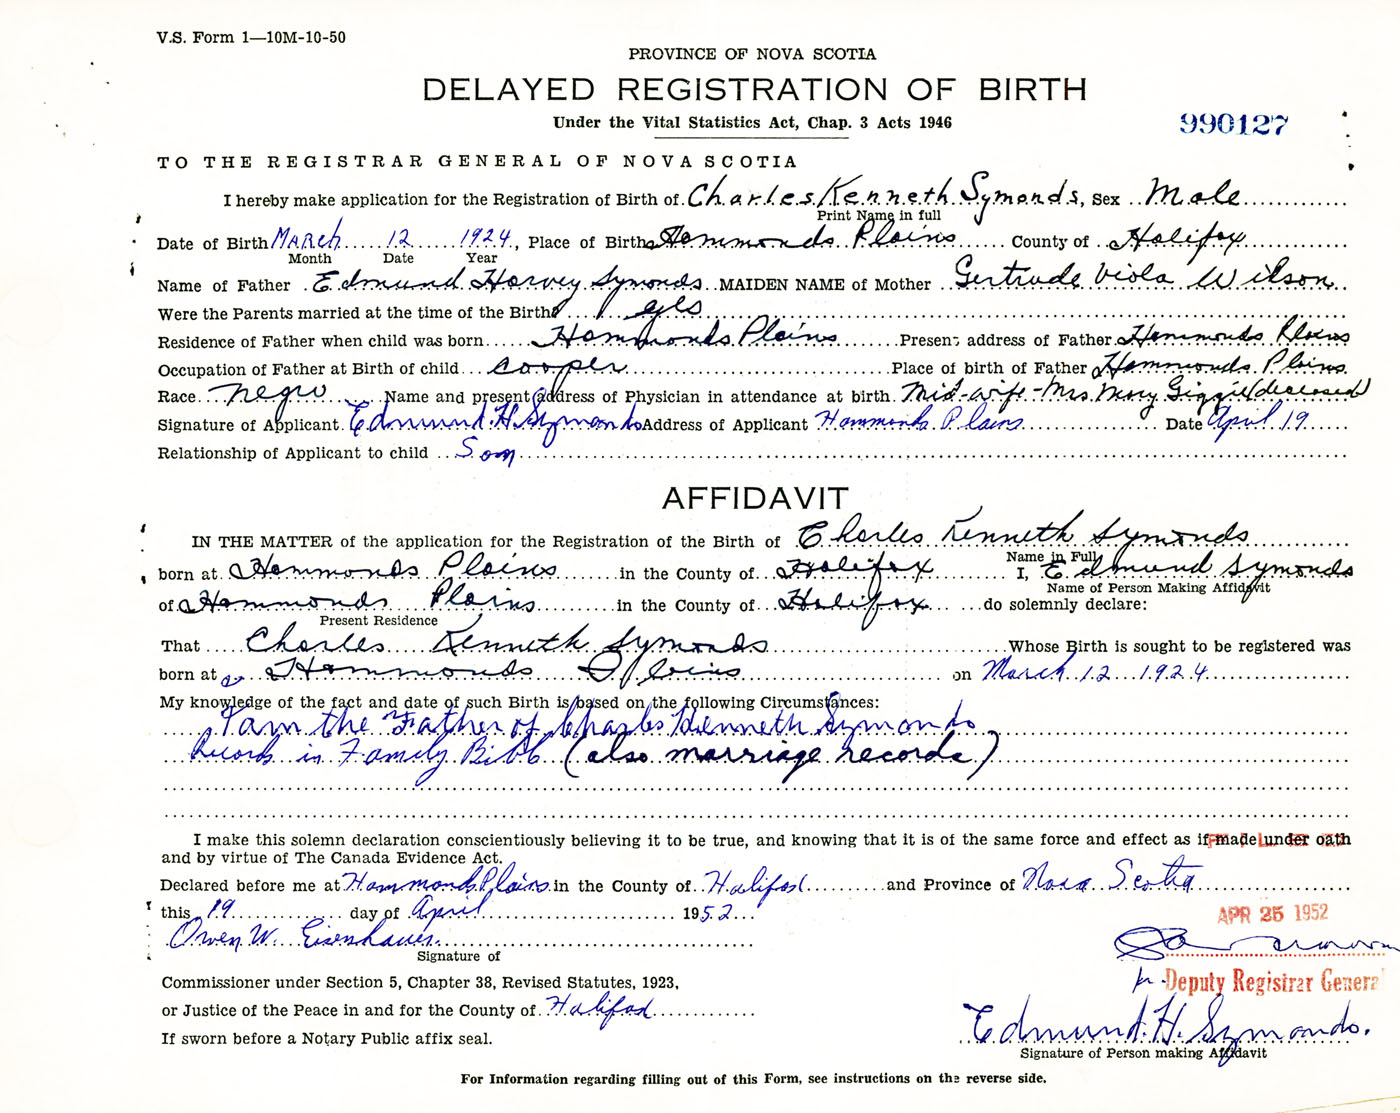 V.S. Form 1—10M-10-50
PROVINCE OF NOVA SCOTIA
DELAYED REGISTRATION OF BIRTH
Under the Vital Statistics Act, Chap. 3 Acts 1946
990127
TO THE REGISTRAR GENERAL OF NOVA SCOTIA
I hereby make application for the Registration of Birth of Charles Kenneth Symonds, Sex Male
Print Name in full
Date of Birth March 12 1924, Place of Birth Hammonds Plains County of Halifax
Month Date Year
Name of Father Edmund Harvey Symonds MAIDEN NAME of Mother Gertrude Viola Wilson
Were the Parents married at the time of the Birth yes
Residence of Father when child was born Hammonds Plains Present address of Father Hammonds Plains
Occupation of Father at Birth of child cooper Place of birth of Father Hammonds Plains
Race negro Name and present address of Physician in attendance at birth Mid-wife - Mrs. Mary (deceased)
Signature of Applicant Edmund H. Symonds Address of Applicant Hammonds Plains Date April 19
Relationship of Applicant to child Son
AFFIDAVIT
IN THE MATTER of the application for the Registration of the Birth of Charles Kenneth Symonds
Name in Full
born at Hammonds Plains in the County of Halifax I, Edmund Symonds
Name of Person Making Affidavit
of Hammonds Plains in the County of Halifax do solemnly declare:
Present Residence
That Charles Kenneth Symonds Whose Birth is sought to be registered was
born at Hammonds Plains on March 12 1924
My knowledge of the fact and date of such Birth is based on the following Circumstances:
I am the Father of Charles Kenneth Symonds
Records in Family Bible (also marriage records)
I make this solemn declaration conscientiously believing it to be true, and knowing that it is of the same force and effect as if made under oath
and by virtue of The Canada Evidence Act.
FILED
Declared before me at Hammonds Plains in the County of Halifax and Province of Nova Scotia
this 19 day of April 1952
APR 25 1952
Owen W. Eisenhauer
Signature of
Commissioner under Section 5, Chapter 38, Revised Statutes, 1923,
Deputy Registrar General
or Justice of the Peace in and for the County of Halifax
Edmund. H. Symonds.
If sworn before a Notary Public affix seal.
Signature of Person making Affidavit
For Information regarding filling out of this Form, see instructions on the reverse side.